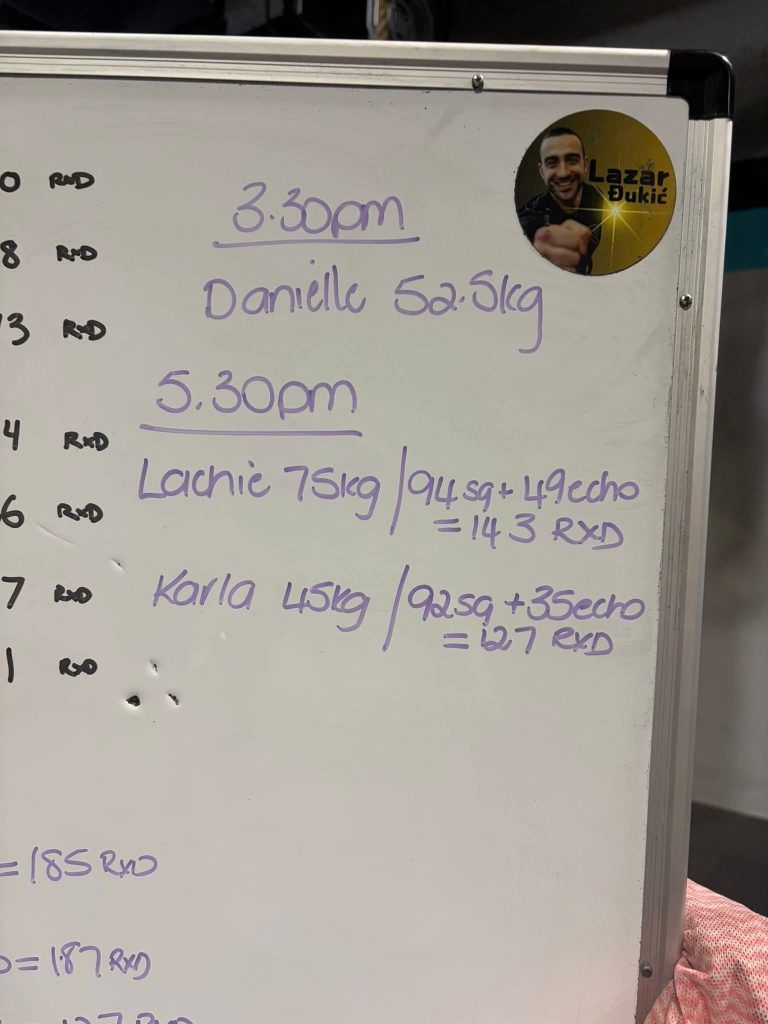 0 RXD
8 RXD
3 RXD
4 RXD
6 RXD
7 RXD
1 RXD
=185 RXD
=187 RXD
127 RXD
Lazar
Đukić
3.30pm
Danielle 52.5kg
5.30pm
Lachie 75kg / 94sq + 49echo
= 143 RXD
Karla 45kg / 92sq + 35echo
= 127 RXD